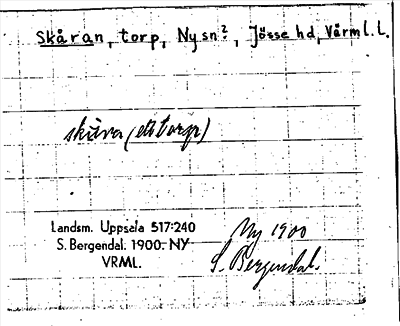 Skåran, torp, Ny sn?, Jösse hd, Värml. l.
skåra (ett torp)
Landsm. Uppsala 517:240
S. Bergendal. 1900. NY
VRML.
Ny 1900
S. Bergendal.